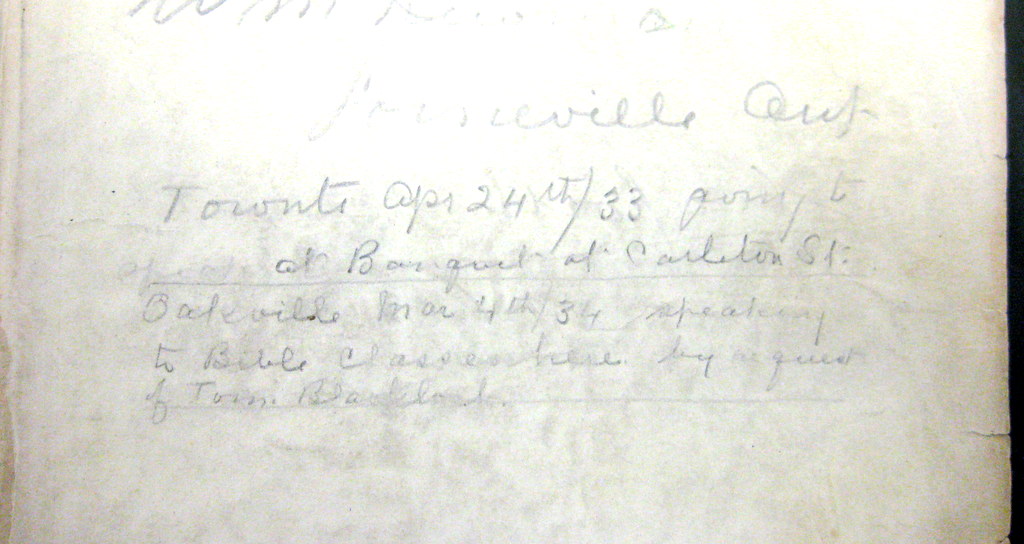 Wm
Ont
Toronto Apr 24th/33 going to
speak at Banquet at Carleton St.
Oakville Mar 4th/34 speaking
to Bible Classes here by request
of Tom Blacklock.